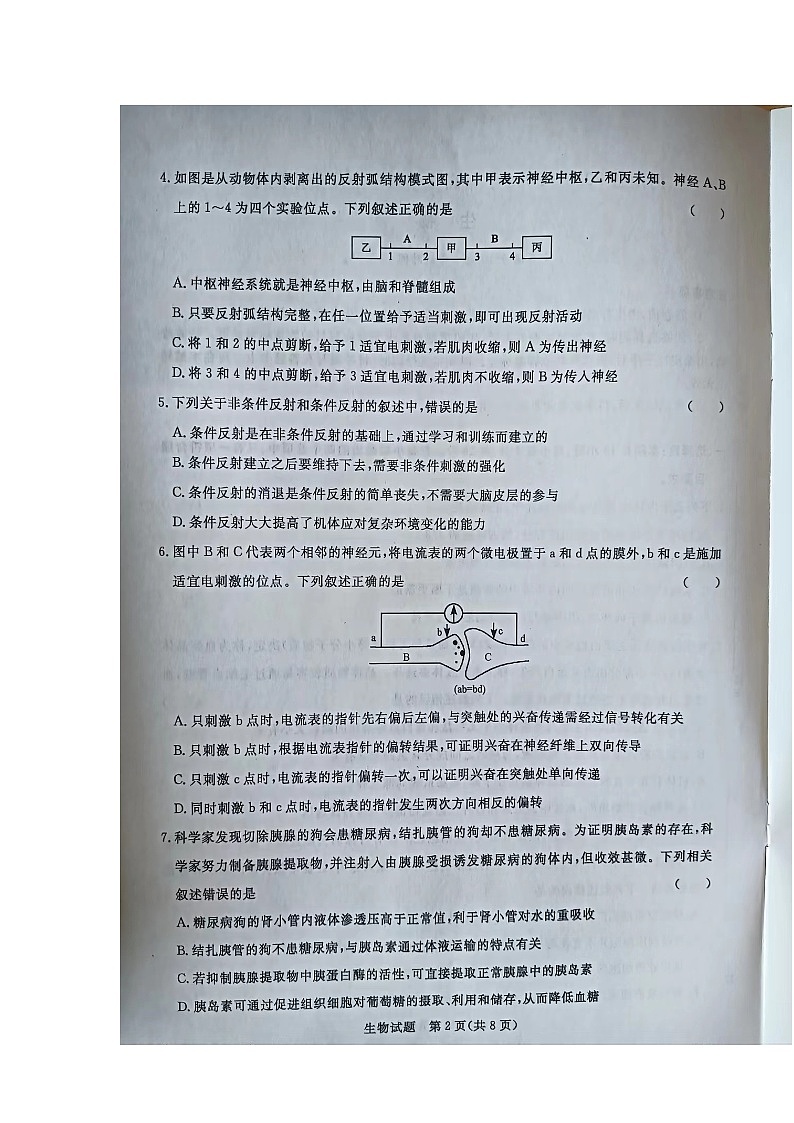 4. 如图是从动物体内剥离出的反射弧结构模式图,其中甲表示神经中枢,乙和丙未知。神经 A、B
上的 1～4 为四个实验位点。下列叙述正确的是 ( )
乙 1 A 2 甲 3 B 4 丙
A. 中枢神经系统就是神经中枢,由脑和脊髓组成
B. 只要反射弧结构完整,在任一位置给予适当刺激,即可出现反射活动
C. 将 1 和 2 的中点剪断,给予 1 适宜电刺激,若肌肉收缩,则 A 为传出神经
D. 将 3 和 4 的中点剪断,给予 3 适宜电刺激,若肌肉不收缩,则 B 为传入神经
5. 下列关于非条件反射和条件反射的叙述中,错误的是 ( )
A. 条件反射是在非条件反射的基础上,通过学习和训练而建立的
B. 条件反射建立之后要维持下去,需要非条件刺激的强化
C. 条件反射的消退是条件反射的简单丧失,不需要大脑皮层的参与
D. 条件反射大大提高了机体应对复杂环境变化的能力
6. 图中 B 和 C 代表两个相邻的神经元,将电流表的两个微电极置于 a 和 d 点的膜外,b 和 c 是施加
适宜电刺激的位点。下列叙述正确的是 ( )
a b c d
B C
(ab=bd)
A. 只刺激 b 点时,电流表的指针先右偏后左偏,与突触处的兴奋传递需经过信号转化有关
B. 只刺激 b 点时,根据电流表指针的偏转结果,可证明兴奋在神经纤维上双向传导
C. 只刺激 c 点时,电流表的指针偏转一次,可以证明兴奋在突触处单向传递
D. 同时刺激 b 和 c 点时,电流表的指针发生两次方向相反的偏转
7. 科学家发现切除胰腺的狗会患糖尿病,结扎胰管的狗却不患糖尿病。为证明胰岛素的存在,科
学家努力制备胰腺提取物,并注射入由胰腺受损诱发糖尿病的狗体内,但收效甚微。下列相关
叙述错误的是 ( )
A. 糖尿病狗的肾小管内液体渗透压高于正常值,利于肾小管对水的重吸收
B. 结扎胰管的狗不患糖尿病,与胰岛素通过体液运输的特点有关
C. 若抑制胰腺提取物中胰蛋白酶的活性,可直接提取正常胰腺中的胰岛素
D. 胰岛素可通过促进组织细胞对葡萄糖的摄取、利用和储存,从而降低血糖
生物试题 第 2 页(共 8 页)